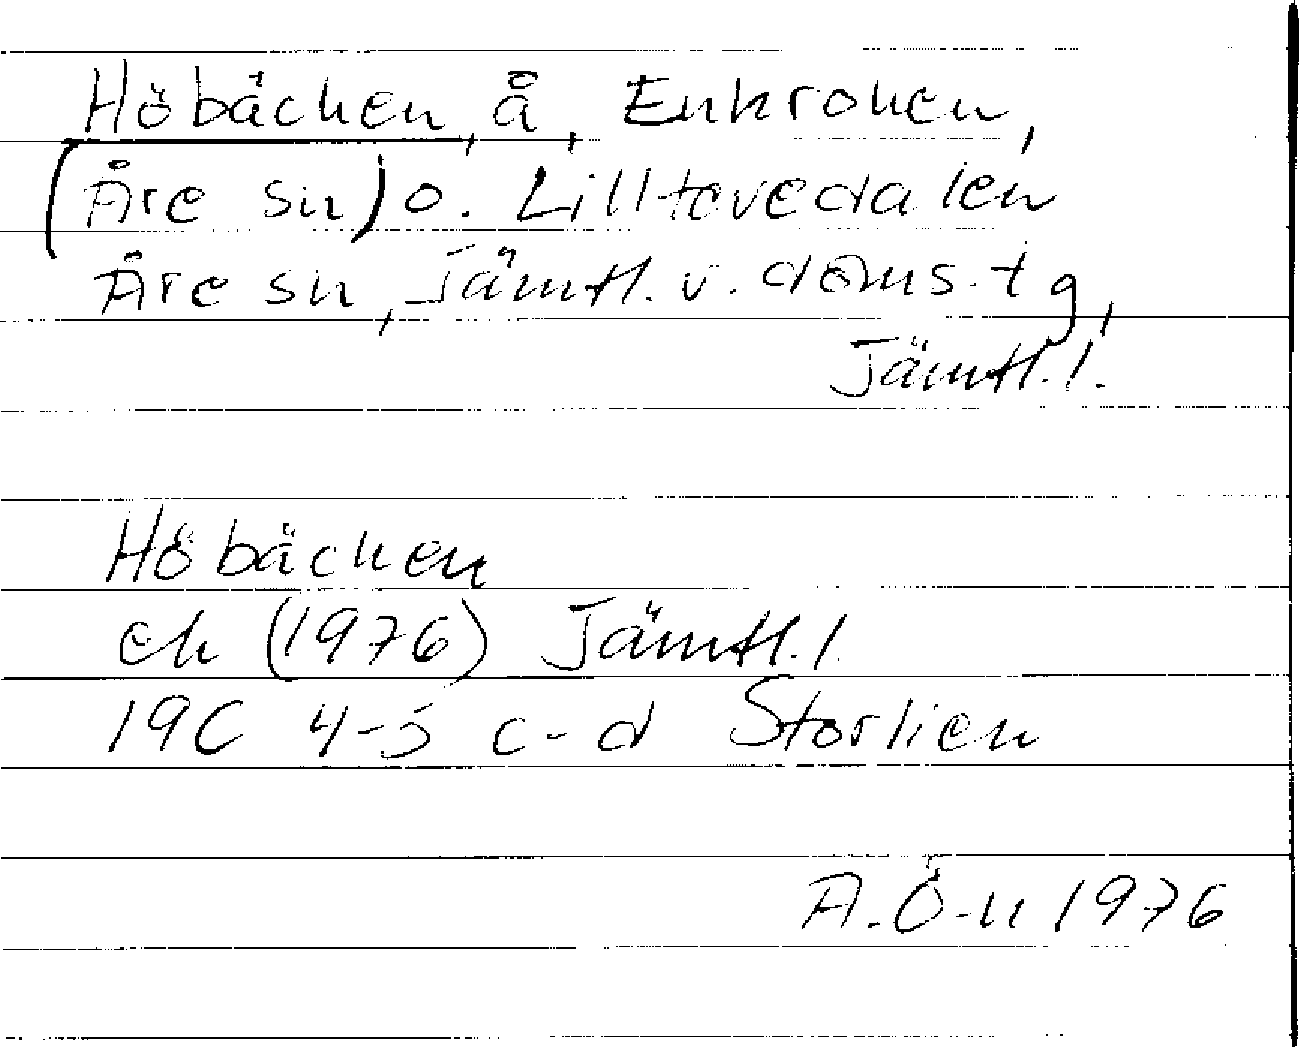 Höbäcken, å, Enkroken,
(Åre sn) o. Lilltevedalen
Åre sn, Jämtl. v. doms. tg,
Jämtl. l.
Höbäcken
ek (1976) Jämtl. l.
19C 4-5 c-d Storlien
A.Ö-n 1976